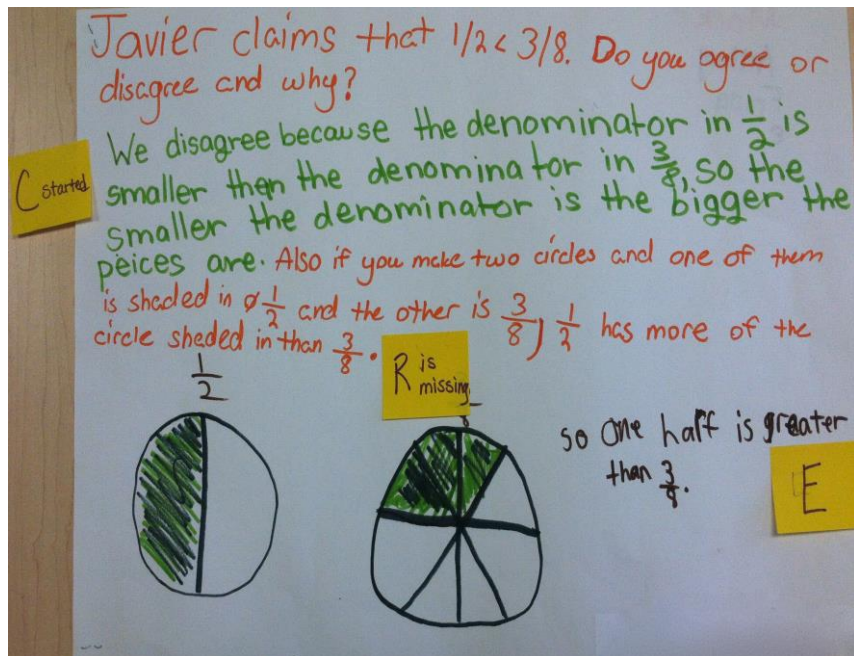 Javier claims that 1/2 < 3/8. Do you agree or
disagree and why?
We disagree because the denominator in 1/2 is
smaller then the denominator in 3/8, so the
smaller the denominator is the bigger the
peices are. Also if you make two circles and one of them
is shaded in 1/2 and the other is 3/8, 1/2 has more of the
circle sheded in than 3/8.
C started
R is
missing
1/2
8
so one half is greater
than 3/8.
E